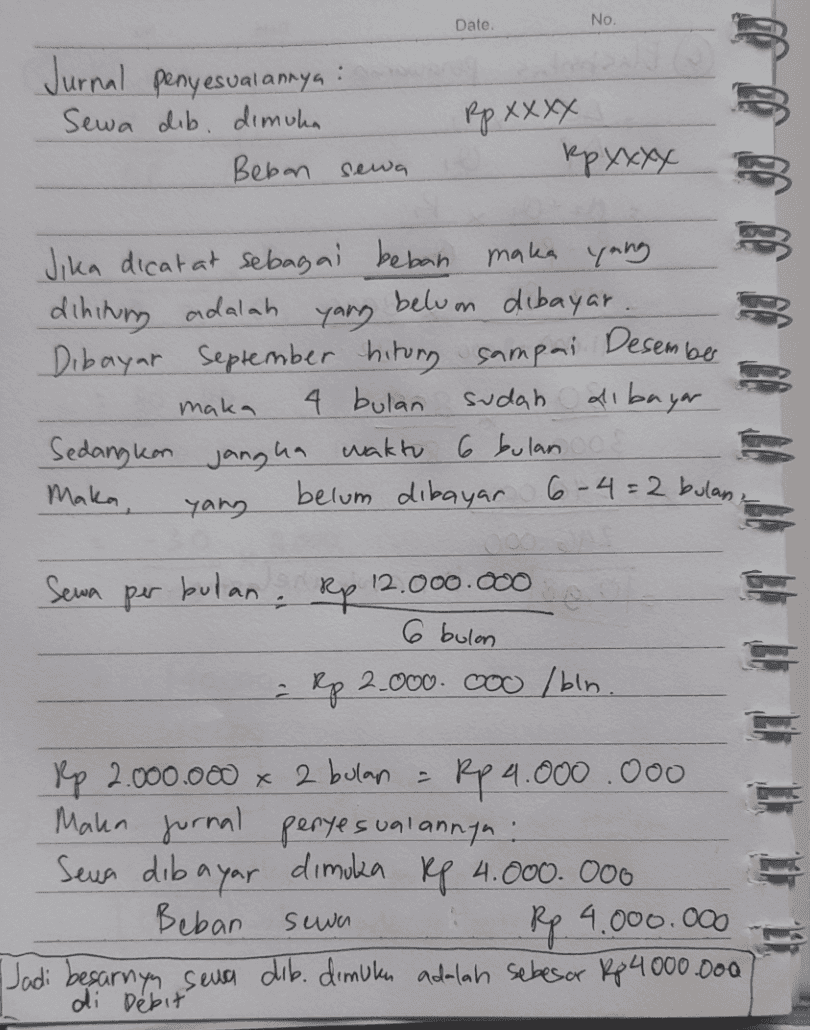 Date. No.
Jurnal penyesuaiannya :
Sewa dib. dimuka Rp XXXX
Beban sewa Rp XXXX
Jika dicatat sebagai beban maka yang
dihitung adalah yang belum dibayar.
Dibayar September hitung sampai Desember
maka 4 bulan sudah dibayar
Sedangkan jangka waktu 6 bulan
Maka, yang belum dibayar 6 - 4 = 2 bulan,
Sewa per bulan = Rp 12.000.000
6 bulan
= Rp 2.000.000 /bln.
Rp 2.000.000 x 2 bulan = Rp 4.000.000
Maka jurnal penyesuaiannya :
Sewa dibayar dimuka Rp 4.000.000
Beban sewa Rp 4.000.000
Jadi besarnya sewa dib. dimuka adalah sebesar Rp4000.000
di Debit